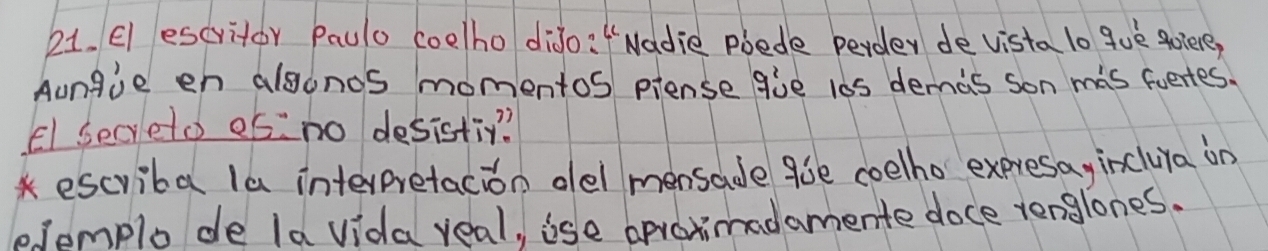 21. El escritor Paulo coelho dijo: "Nadie púede perder de vista lo qúe qúiere,
Aunqúe en algúnos momentos piense qúe los demás son más fuertes.
El secreto es: no desistir".
* escriba la interpretación del mensaje qúe coelho expresa, incluya ún
ejemplo de la vida real, úse aproximadamente doce renglones.